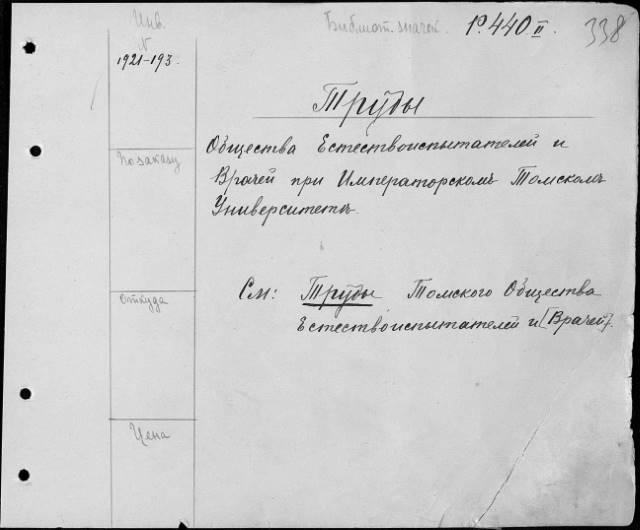 Инв.
№
1921-193.
Библиот. значок. 1º.440 II.
338
Труды
Общества Естествоиспытателей и
Врачей при Императорскомъ Томскомъ
Университетѣ.
По заказу
См: Труды Томского Общества
Естествоиспытателей и [Врачей].
Откуда
Цена